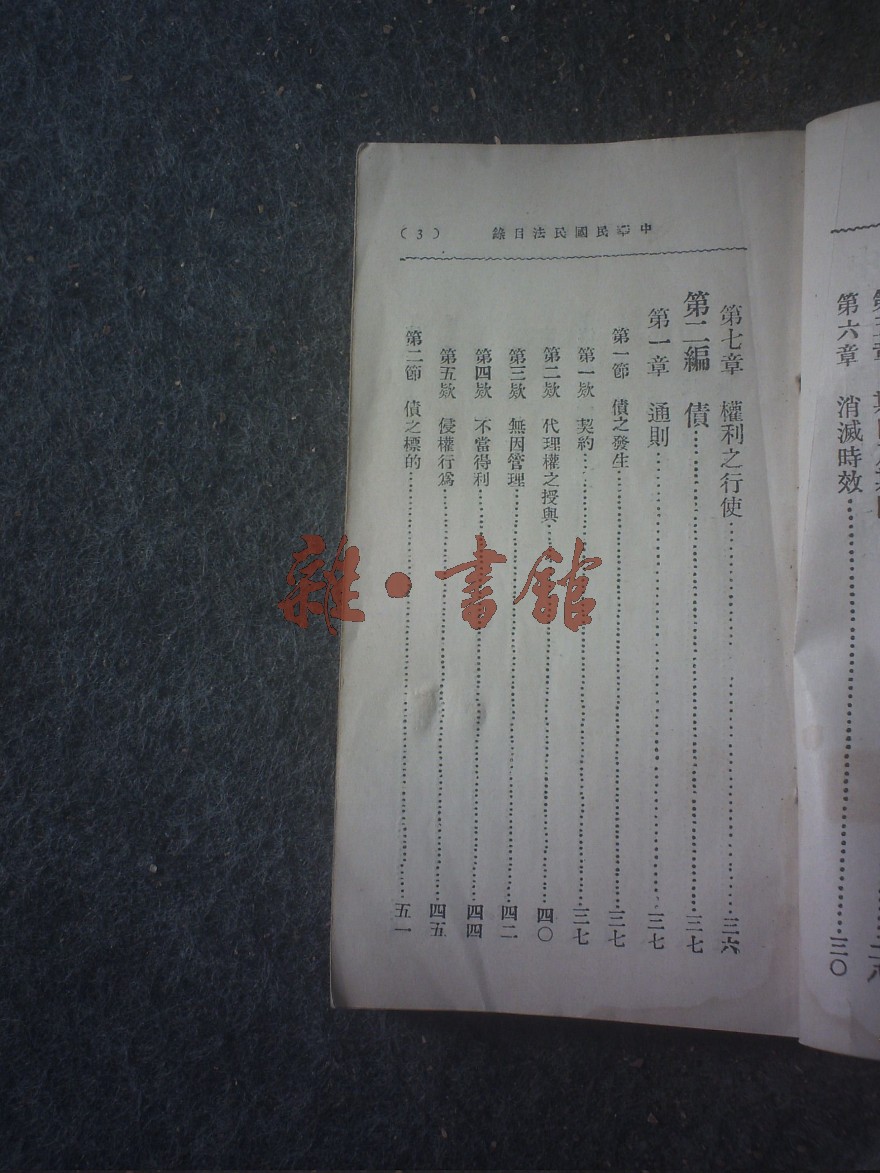 中華民國民法目錄 (3)
第六章 消滅時效 三〇
第七章 權利之行使 三六
第二編 債 三七
第一章 通則 三七
第一節 債之發生 三七
第一款 契約 三七
第二款 代理權之授與 四〇
第三款 無因管理 四二
第四款 不當得利 四四
第五款 侵權行爲 四五
第二節 債之標的 五一
雜·書館